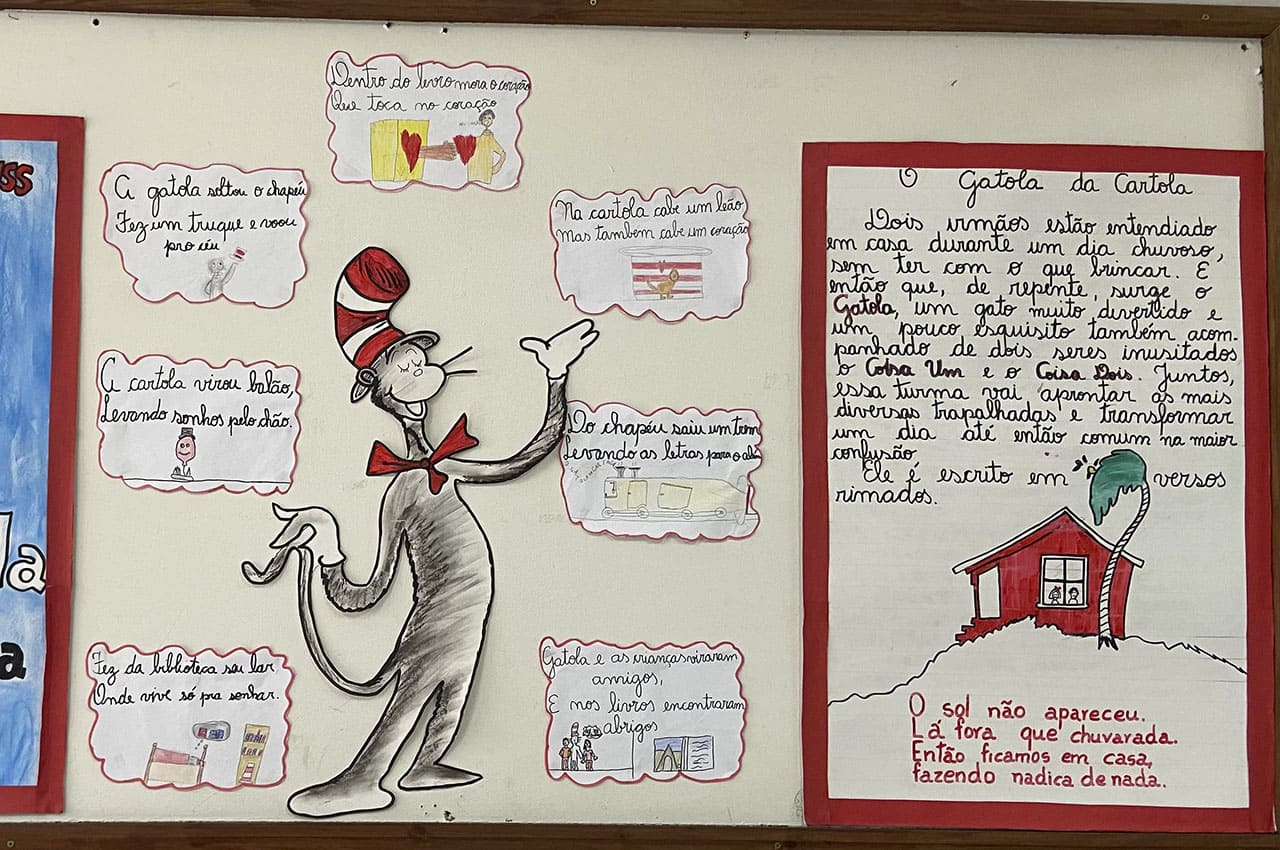 ss
la
a
Dentro do livro mora o coração
Que toca no coração
A gatola soltou o chapéu
Fez um truque e voou
pro céu
Na cartola cabe um leão,
Mas também cabe um coração
A cartola virou balão,
Levando sonhos pelo chão.
Do chapéu saiu um trem
Levando as letras para o além
Fez da biblioteca seu lar,
Onde vive só pra sonhar.
Gatola e as crianças viraram
amigos,
E nos livros encontraram
abrigos
O Gatola da Cartola
Dois irmãos estão entendiado
em casa durante um dia chuvoso,
sem ter com o que brincar. E
então que, de repente, surge o
Gatola, um gato muito divertido e
um pouco esquisito também acom-
panhado de dois seres inusitados
o Coisa Um e o Coisa Dois. Juntos,
essa turma vai aprontar as mais
diversas trapalhadas e transformar
um dia até então comum na maior
confusão
Ele é escrito em versos
rimados.
O sol não apareceu.
Lá fora que chuvarada.
Então ficamos em casa,
fazendo nadica de nada.